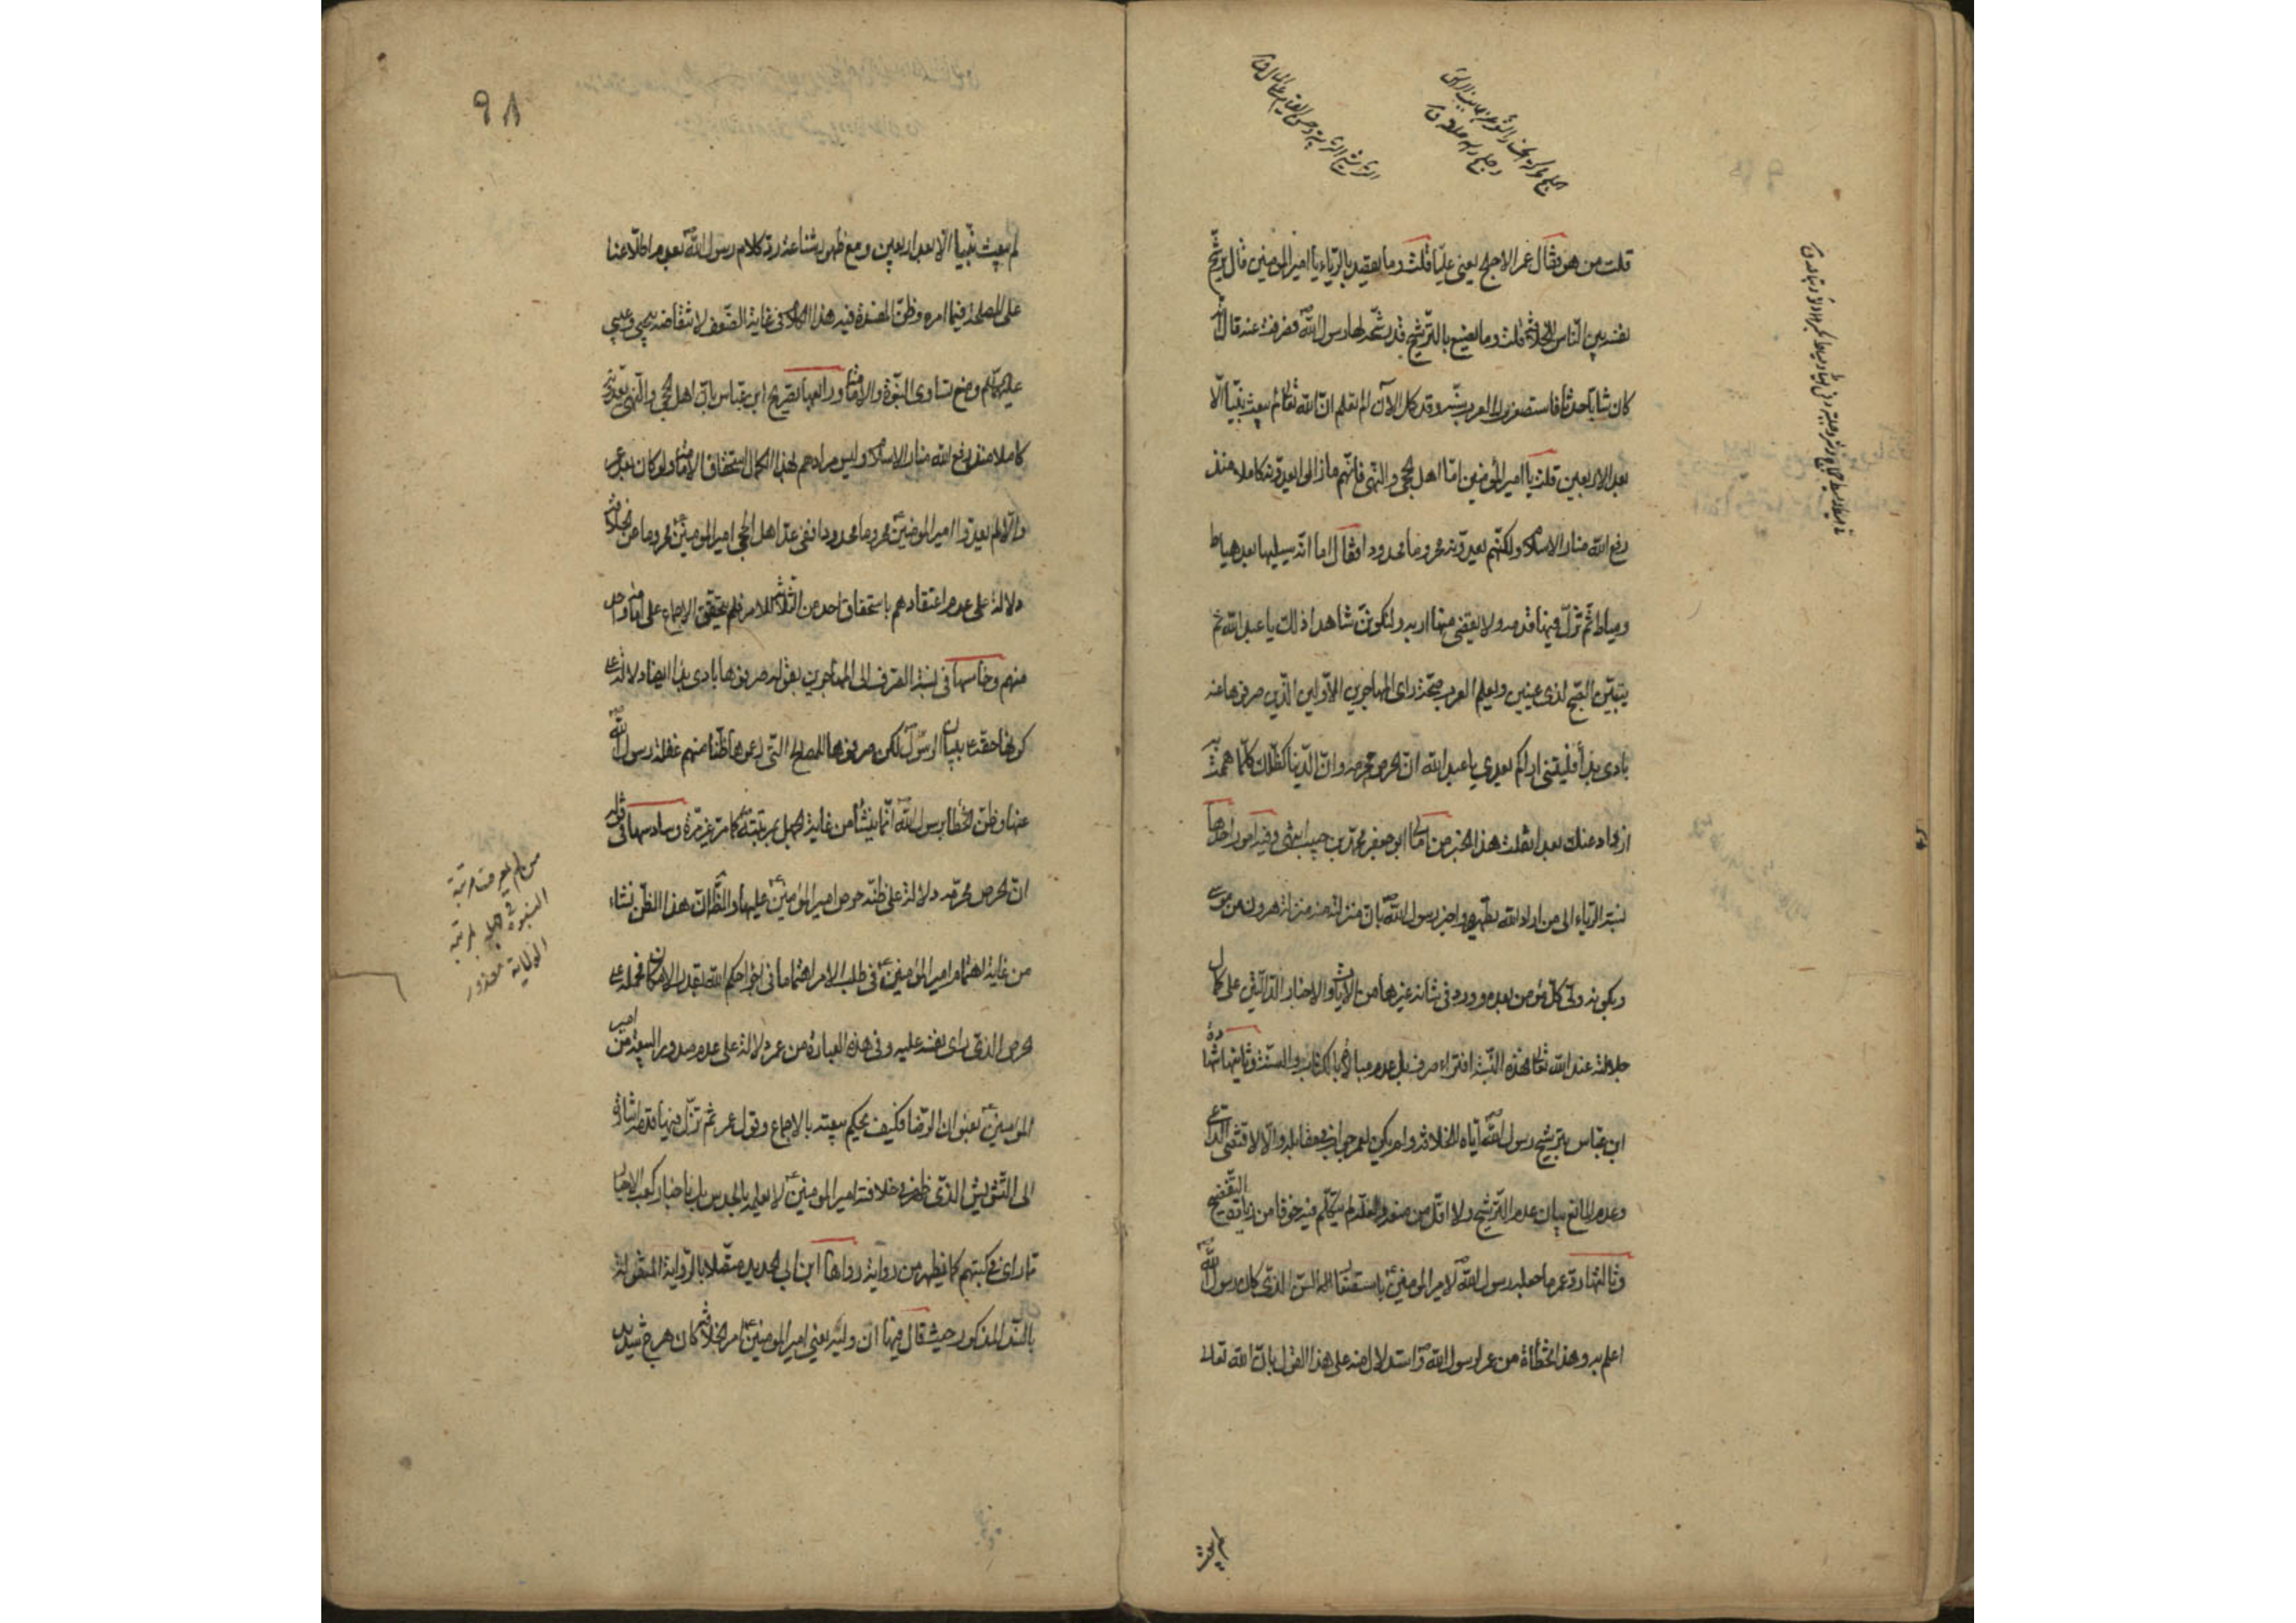 قلت من هو فقال عمر الاجلح يعنى عليّا قلت وما يقصد بالرياء يا امير المؤمنين قال يرشّح
نفسه بين النّاس للخلافة قلت وما يصنع بالترشيح قد رشّحه لها رسول الله فصرفت عنه قال انّه
كان شابّا حدثا فاستصغرت العرب سنّه وقد كمل الآن الم تعلم ان الله تعالى لم يبعث نبيّا الّا
بعد الاربعين قلت يا امير المؤمنين امّا اهل الحجى والنّهى فانّهم ما زالوا يعدّونه كاملا منذ
رفع الله منار الاسلام ولكنّهم يعدّونه محروما مجدودا فقال اما انّه سيليها بعد هياط
ومياط ثم تزلّ فيها قدمه ولا يقضى منها اربه ولتكوننّ شاهدا ذلك يا عبد الله ثم
يتبيّن الصّبح لذى عينين وليعلم العرب صحّة راى المهاجرين الاوّلين الّذين صرفوها عنه
بادى بدأ فليتنى اراكم بعدى يا عبد الله ان الحرص محرمه وان الدّنيا كظلّك كلّما هممت به
ازداد عنك بعدا نقلت هذا الخبر من امالى ابى جعفر محمّد بن حبيب انتهى وفيه امور احدها
نسبة الرّياء الى من اراد الله تطهيره واخبر رسول الله بان منزلته منه منزلة هرون من موسى
وبكونه ولىّ كلّ مؤمن بعده وورد فى شانه غيرها من الآيات والاخبار الدّالّين على كمال
جلالته عند الله تعالى فهذه النّسبة افتراء صرف بل عدم مبالاة بالكتاب والسنّة وثانيها شهادة
ابن عبّاس بترشيح رسول الله ايّاه للخلافة ولم يكن لعمر جواب فى مقابله والّا لاقتضى الدّاعى
وعدم المانع بيان عدم التّرشيح ولا اقلّ من منعه ولعلّه لم يتكلّم فيه خوفا من زيادة التفضيح
وثالثها ردّ عمر ما جعله رسول الله لامير المؤمنين باستصغار السّن الذى كان رسول الله
اعلم به وهذا تخطأة من عمر لرسول الله واستدلال منه على هذا القول بان الله تعالى
لم يبعث
٩٨
لم يبعث نبيّا الّا بعد اربعين ومع ظهور شناعة ردّ كلام رسول الله بعدم اطّلاعنا
على المصلحة فيما امره وظنّ المفسدة فيه هذا الكلام فى غاية الضّعف لانتقاضه بيحيى وعيسى
عليهما السلم وضع تساوى النبوّة والامامة ورابعها تصريح ابن عبّاس بان اهل الحجى والنّهى يعدّونه
كاملا منذ رفع الله منار الاسلام وليس مرادهم بهذا الكمال استحقاق الامامة ولو كان بعد عمر
والّا لم يعدّوا امير المؤمنين محروما مجدودا ففى عدّ اهل الحجى امير المؤمنين محروما من الخلافة
دلالة على عدم اعتقادهم باستحقاق احد من الثّلاثة للامر فلم يتحقّق الاجماع على امامة واحد
منهم وخامسها فى نسبة الصّرف الى المهاجرين بقوله صرفوها بادى بدا ايضا دلالة على
كونها حقّه ببيان الرسول لكن صرفوها للمصلحة التى زعموها ظنّا منهم غفلة رسول الله
عنها وظنّ الخطأ برسول الله انّما ينشأ من غاية الجهل بمرتبته كما مرّ غير مرّة وسادسها فى قوله
ان الحرص محرمه دلالة على ظنّه حرص امير المؤمنين عليها والظّاهر ان هذا الظنّ نشاء
من غاية اهتمام امير المؤمنين فى طلب الامر اهتماما فى اجراء حكم الله بقدر الامكان فحمله على
الحرص الذى راى نفسه عليه وفى هذه العبارة من عمر دلالة على عدم صدور البيعة من امير
المؤمنين بعنوان الرّضا فكيف يحكم ببيعته بالاجماع وقول عمر ثم تزلّ فيها قدمه اشارة
الى التّشويش الذى ظهر فى خلافة امير المؤمنين لا بعلمه بالحدس بل باخبار كعب الاحبار
بما راى فى كتبهم كما يظهر من رواية رواها ابن ابى الحديد متّصلا بالرّواية المنقولة
بالسّند المذكور حيث قال فيها ان وليه يعنى امير المؤمنين امر الخلافة كان هرج شديد
من لم يعرف مرتبة
النبوة فى جهله لمرتبة
الولاية معذور